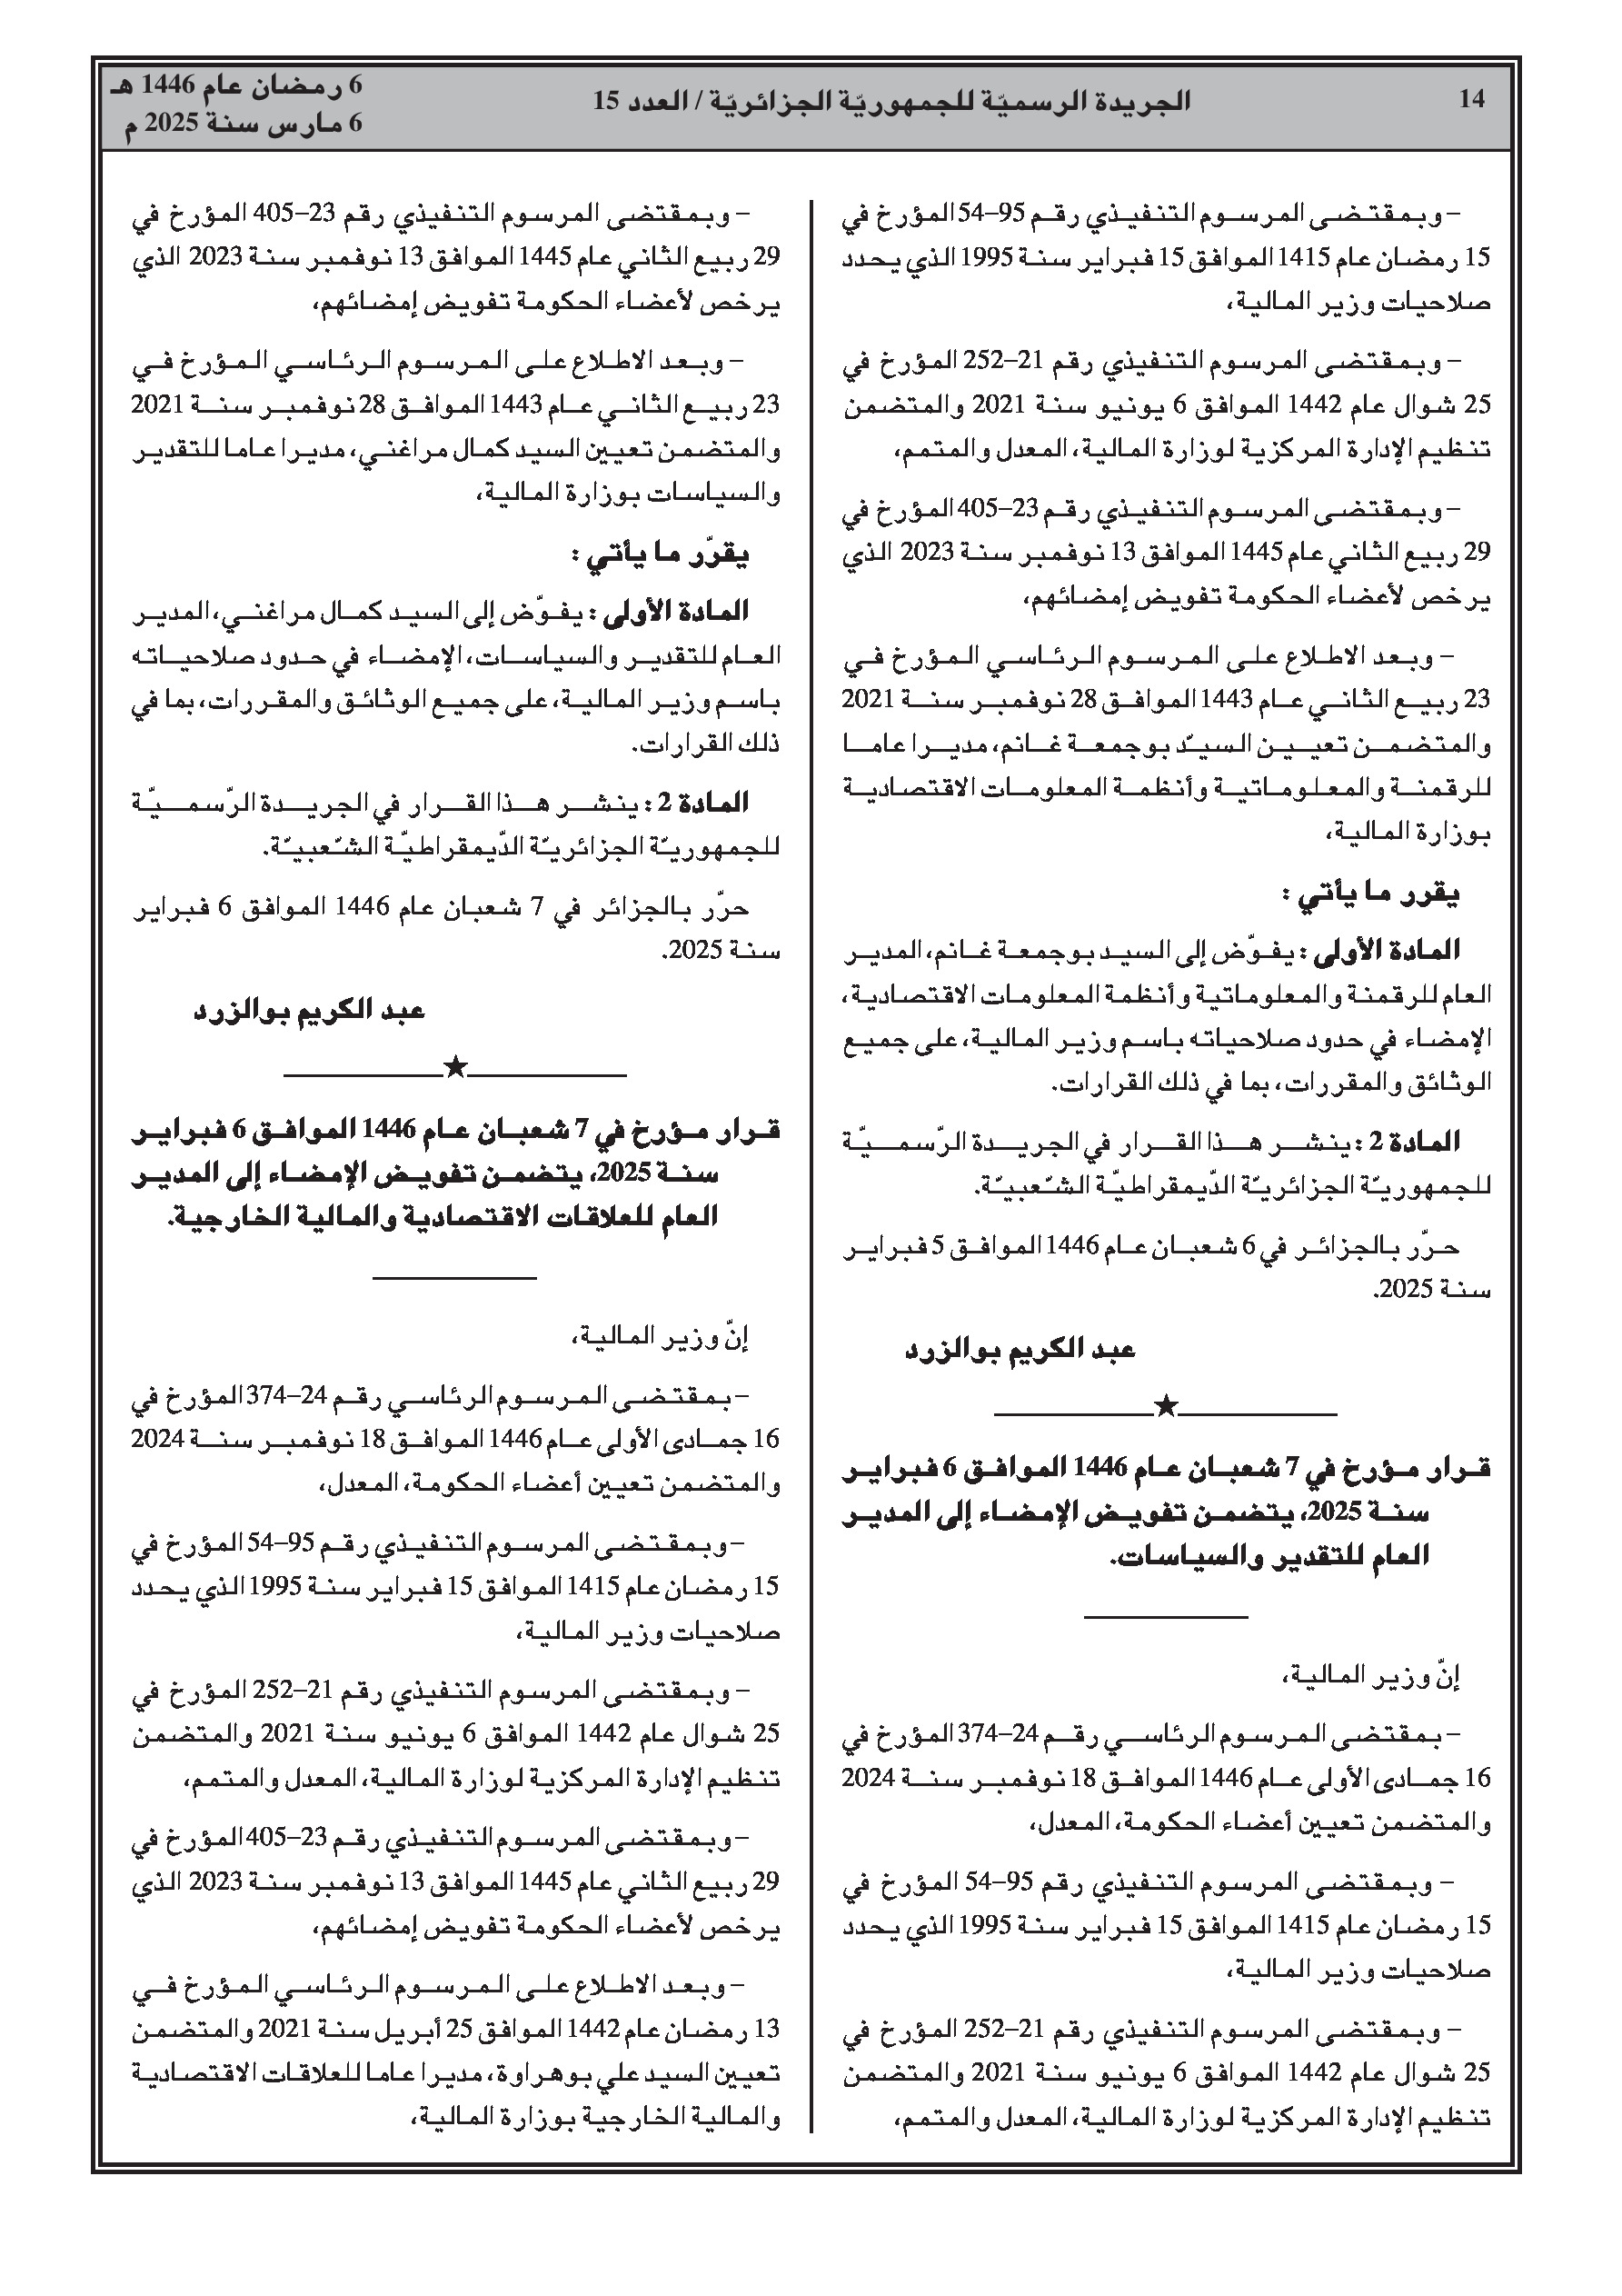 14
الجريدة الرسميّة للجمهوريّة الجزائريّة / العدد 15
6 رمضان عام 1446 هـ
6 مارس سنة 2025 م
– وبمقتضى المرسوم التنفيذي رقم 95–54 المؤرخ في
15 رمضان عام 1415 الموافق 15 فبراير سنة 1995 الذي يحدد
صلاحيات وزير المالية،
– وبمقتضى المرسوم التنفيذي رقم 21–252 المؤرخ في
25 شوال عام 1442 الموافق 6 يونيو سنة 2021 والمتضمن
تنظيم الإدارة المركزية لوزارة المالية، المعدل والمتمم،
– وبمقتضى المرسوم التنفيذي رقم 23–405 المؤرخ في
29 ربيع الثاني عام 1445 الموافق 13 نوفمبر سنة 2023 الذي
يرخص لأعضاء الحكومة تفويض إمضائهم،
– وبعد الاطلاع على المرسوم الرئاسي المؤرخ في
23 ربيع الثاني عام 1443 الموافق 28 نوفمبر سنة 2021
والمتضمن تعيين السيّد بوجمعة غانم، مديرا عاما
للرقمنة والمعلوماتية وأنظمة المعلومات الاقتصادية
بوزارة المالية،
يقرر ما يأتي :
المادة الأولى : يفوّض إلى السيد بوجمعة غانم، المدير
العام للرقمنة والمعلوماتية وأنظمة المعلومات الاقتصادية،
الإمضاء في حدود صلاحياته باسم وزير المالية، على جميع
الوثائق والمقررات، بما في ذلك القرارات.
المادة 2 : ينشر هذا القرار في الجريدة الرّسميّة
للجمهوريّة الجزائريّة الدّيمقراطيّة الشّعبيّة.
حرّر بالجزائر في 6 شعبان عام 1446 الموافق 5 فبراير
سنة 2025.
عبد الكريم بوالزرد
قرار مؤرخ في 7 شعبان عام 1446 الموافق 6 فبراير
سنة 2025، يتضمن تفويض الإمضاء إلى المدير
العام للتقدير والسياسات.
إنّ وزير المالية،
– بمقتضى المرسوم الرئاسي رقم 24–374 المؤرخ في
16 جمادى الأولى عام 1446 الموافق 18 نوفمبر سنة 2024
والمتضمن تعيين أعضاء الحكومة، المعدل،
– وبمقتضى المرسوم التنفيذي رقم 95–54 المؤرخ في
15 رمضان عام 1415 الموافق 15 فبراير سنة 1995 الذي يحدد
صلاحيات وزير المالية،
– وبمقتضى المرسوم التنفيذي رقم 21–252 المؤرخ في
25 شوال عام 1442 الموافق 6 يونيو سنة 2021 والمتضمن
تنظيم الإدارة المركزية لوزارة المالية، المعدل والمتمم،
– وبمقتضى المرسوم التنفيذي رقم 23–405 المؤرخ في
29 ربيع الثاني عام 1445 الموافق 13 نوفمبر سنة 2023 الذي
يرخص لأعضاء الحكومة تفويض إمضائهم،
– وبعد الاطلاع على المرسوم الرئاسي المؤرخ في
23 ربيع الثاني عام 1443 الموافق 28 نوفمبر سنة 2021
والمتضمن تعيين السيد كمال مراغني، مديرا عاما للتقدير
والسياسات بوزارة المالية،
يقرّر ما يأتي :
المادة الأولى : يفوّض إلى السيد كمال مراغني، المدير
العام للتقدير والسياسات، الإمضاء في حدود صلاحياته
باسم وزير المالية، على جميع الوثائق والمقررات، بما في
ذلك القرارات.
المادة 2 : ينشر هذا القرار في الجريدة الرّسميّة
للجمهوريّة الجزائريّة الدّيمقراطيّة الشّعبيّة.
حرّر بالجزائر في 7 شعبان عام 1446 الموافق 6 فبراير
سنة 2025.
عبد الكريم بوالزرد
قرار مؤرخ في 7 شعبان عام 1446 الموافق 6 فبراير
سنة 2025، يتضمن تفويض الإمضاء إلى المدير
العام للعلاقات الاقتصادية والمالية الخارجية.
إنّ وزير المالية،
– بمقتضى المرسوم الرئاسي رقم 24–374 المؤرخ في
16 جمادى الأولى عام 1446 الموافق 18 نوفمبر سنة 2024
والمتضمن تعيين أعضاء الحكومة، المعدل،
– وبمقتضى المرسوم التنفيذي رقم 95–54 المؤرخ في
15 رمضان عام 1415 الموافق 15 فبراير سنة 1995 الذي يحدد
صلاحيات وزير المالية،
– وبمقتضى المرسوم التنفيذي رقم 21–252 المؤرخ في
25 شوال عام 1442 الموافق 6 يونيو سنة 2021 والمتضمن
تنظيم الإدارة المركزية لوزارة المالية، المعدل والمتمم،
– وبمقتضى المرسوم التنفيذي رقم 23–405 المؤرخ في
29 ربيع الثاني عام 1445 الموافق 13 نوفمبر سنة 2023 الذي
يرخص لأعضاء الحكومة تفويض إمضائهم،
– وبعد الاطلاع على المرسوم الرئاسي المؤرخ في
13 رمضان عام 1442 الموافق 25 أبريل سنة 2021 والمتضمن
تعيين السيد علي بوهراوة، مديرا عاما للعلاقات الاقتصادية
والمالية الخارجية بوزارة المالية،